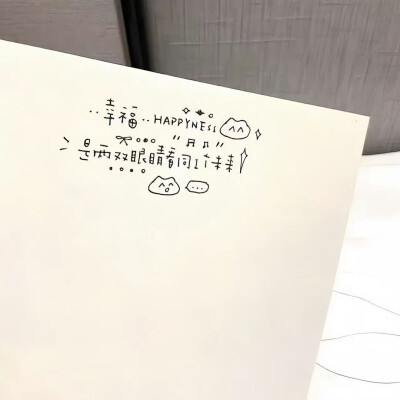 幸福··HAPPYNESS
是两双眼睛看同1个未来
...